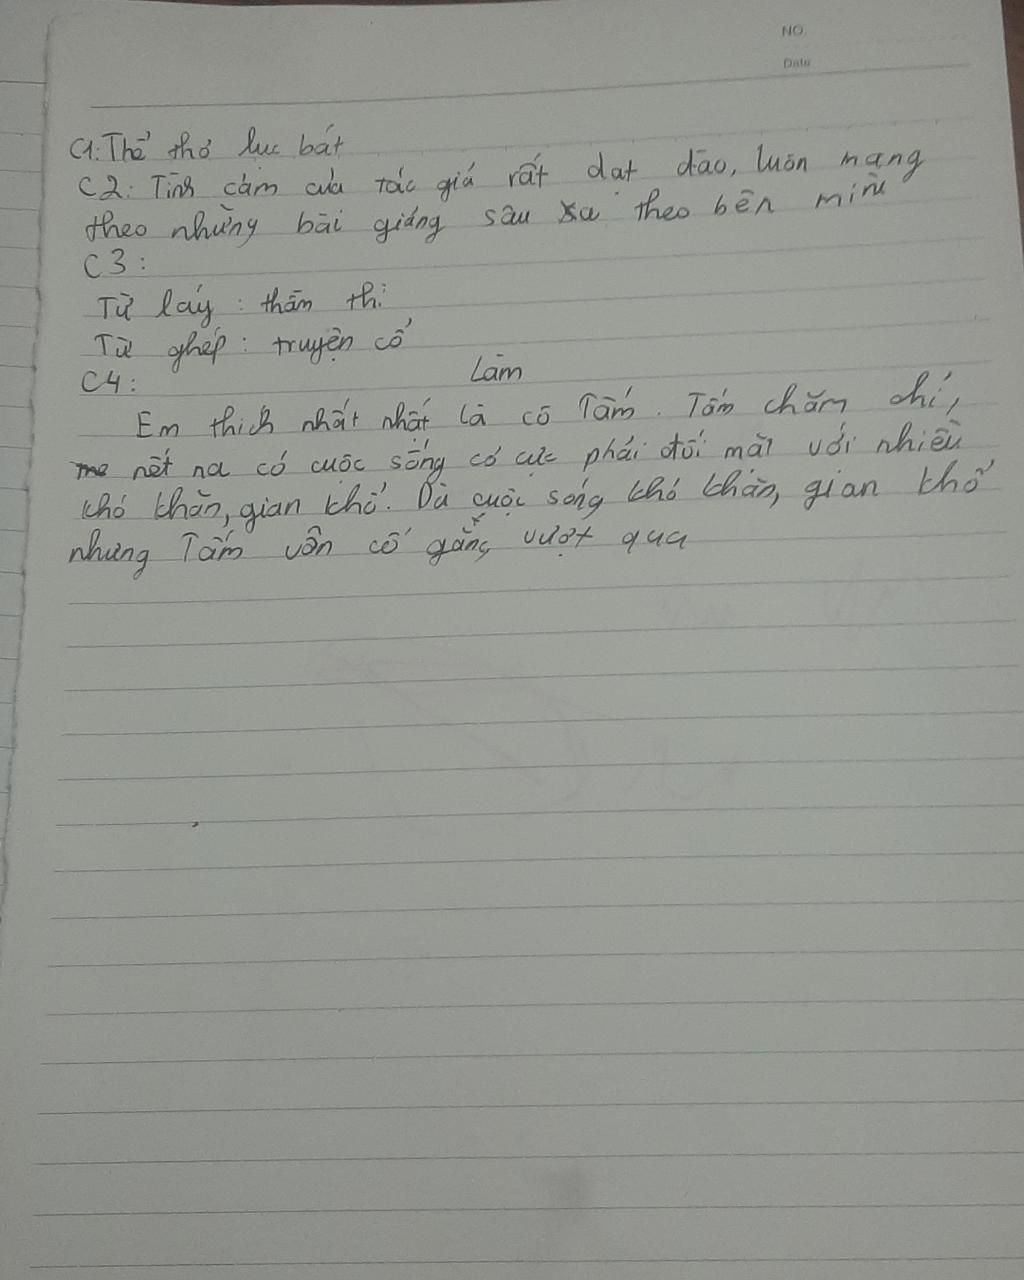 NO.
Date
C1: Thể thơ lục bát
C2: Tình cảm của tác giả rất dạt dào, luôn mang
theo những bài giảng sâu xa theo bên mình
C3:
Từ láy: thầm thì
Từ ghép: truyện cổ
C4: Làm
Em thích nhất nhất là cô Tấm. Tấm chăm chỉ,
nết na có cuộc sống cơ cực phải đối mặt với nhiều
khó khăn, gian khổ. Dù cuộc sống khó khăn, gian khổ
nhưng Tấm vẫn cố gắng vượt qua